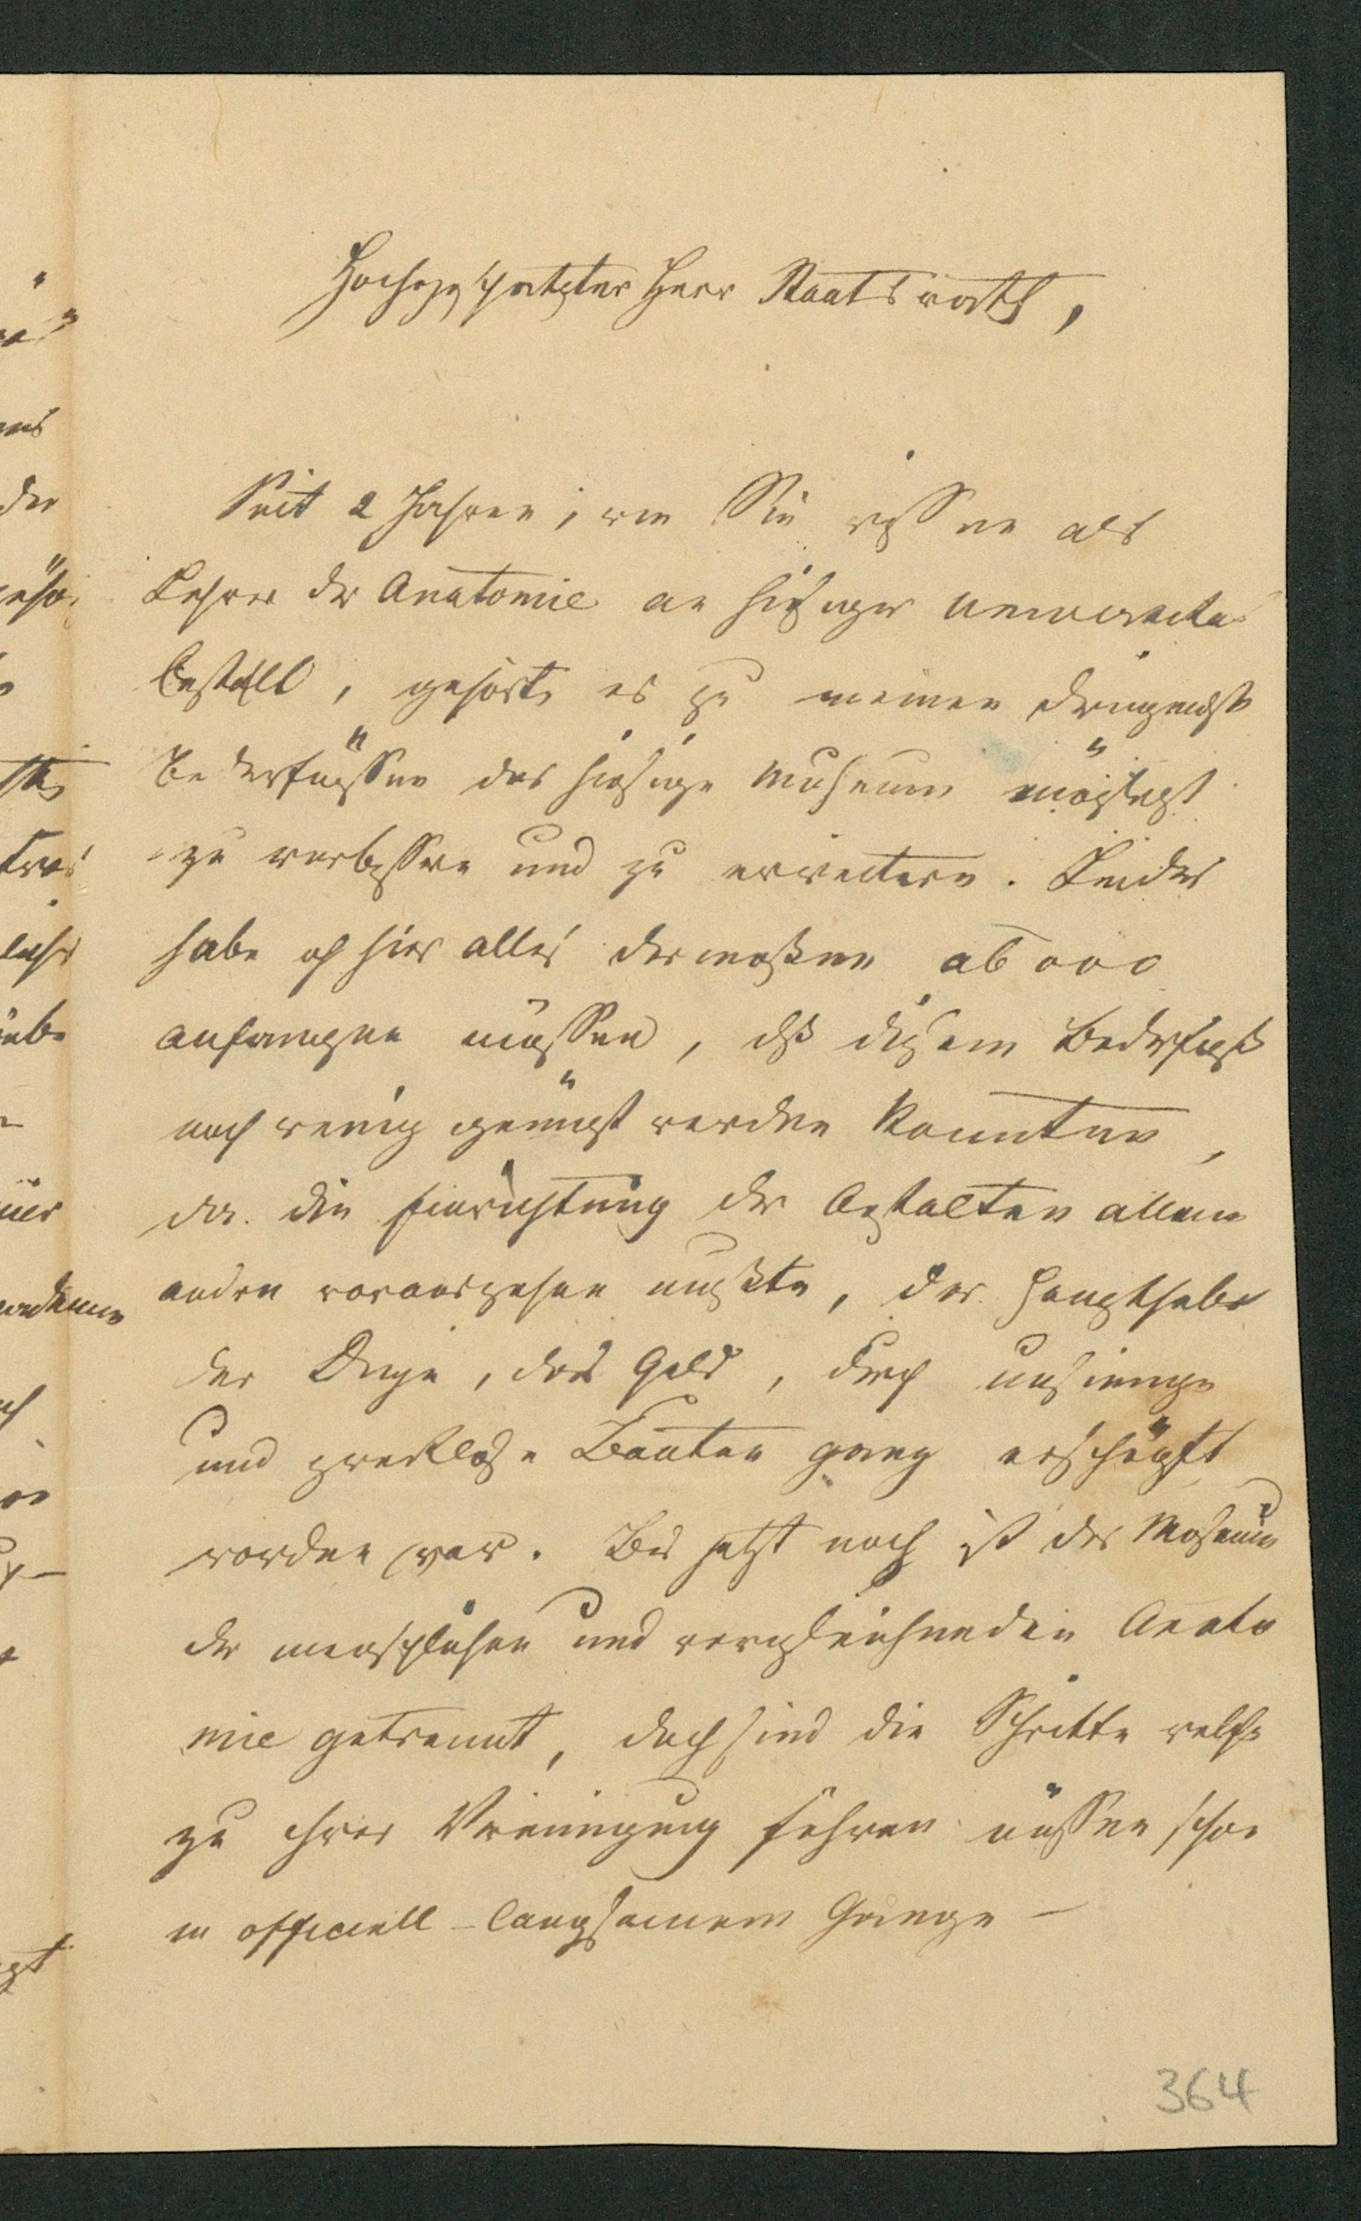 Hochgeschätzter Herr Staatsrath,
Seit 2 Jahren, wie Sie wissen als
Lehrer der Anatomie an hiesiger Universitä
bestallt, gehörte es zu meinen dringendst
Bedürfnissen das hiesige Museum möglichst
zu verbessern und zu erweitern. Leider
habe ich hier alles dermaßen ab ovo
anfangen müssen, daß diesem Bedürfniß
noch wenig genügt werden konnte,
da die Einrichtung der Anstalten allem
andren vorausgehen mußte, der Haupthebel
der Dinge, das Geld, durch unsinnige
und zwecklose Bauten ganz erschöpft
worden war. Bis jetzt noch ist das Museum
der menschlichen und vergleichenden Anato
mie getrennt, doch sind die Schritte welche
zu ihrer Vereinigung führen müssen schon
in officiell-langsamem Gange –
364